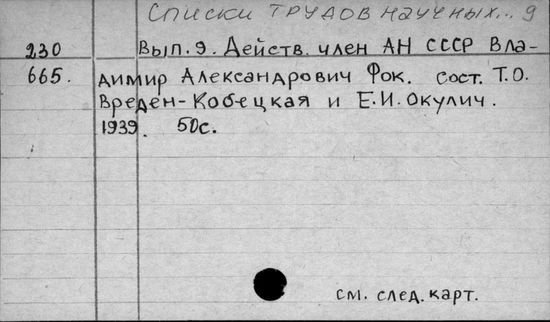 Списки трудов научных... 9
230 Вып. 9. Действ. член АН СССР Вла-
665. димир Александрович Фок. сост. Т.О.
Вреден-Кобецкая и Е.И. Окулич.
1939. 50с.
см. след. карт.